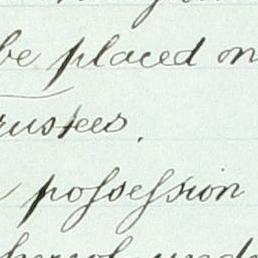 be placed on
rustees.
possession